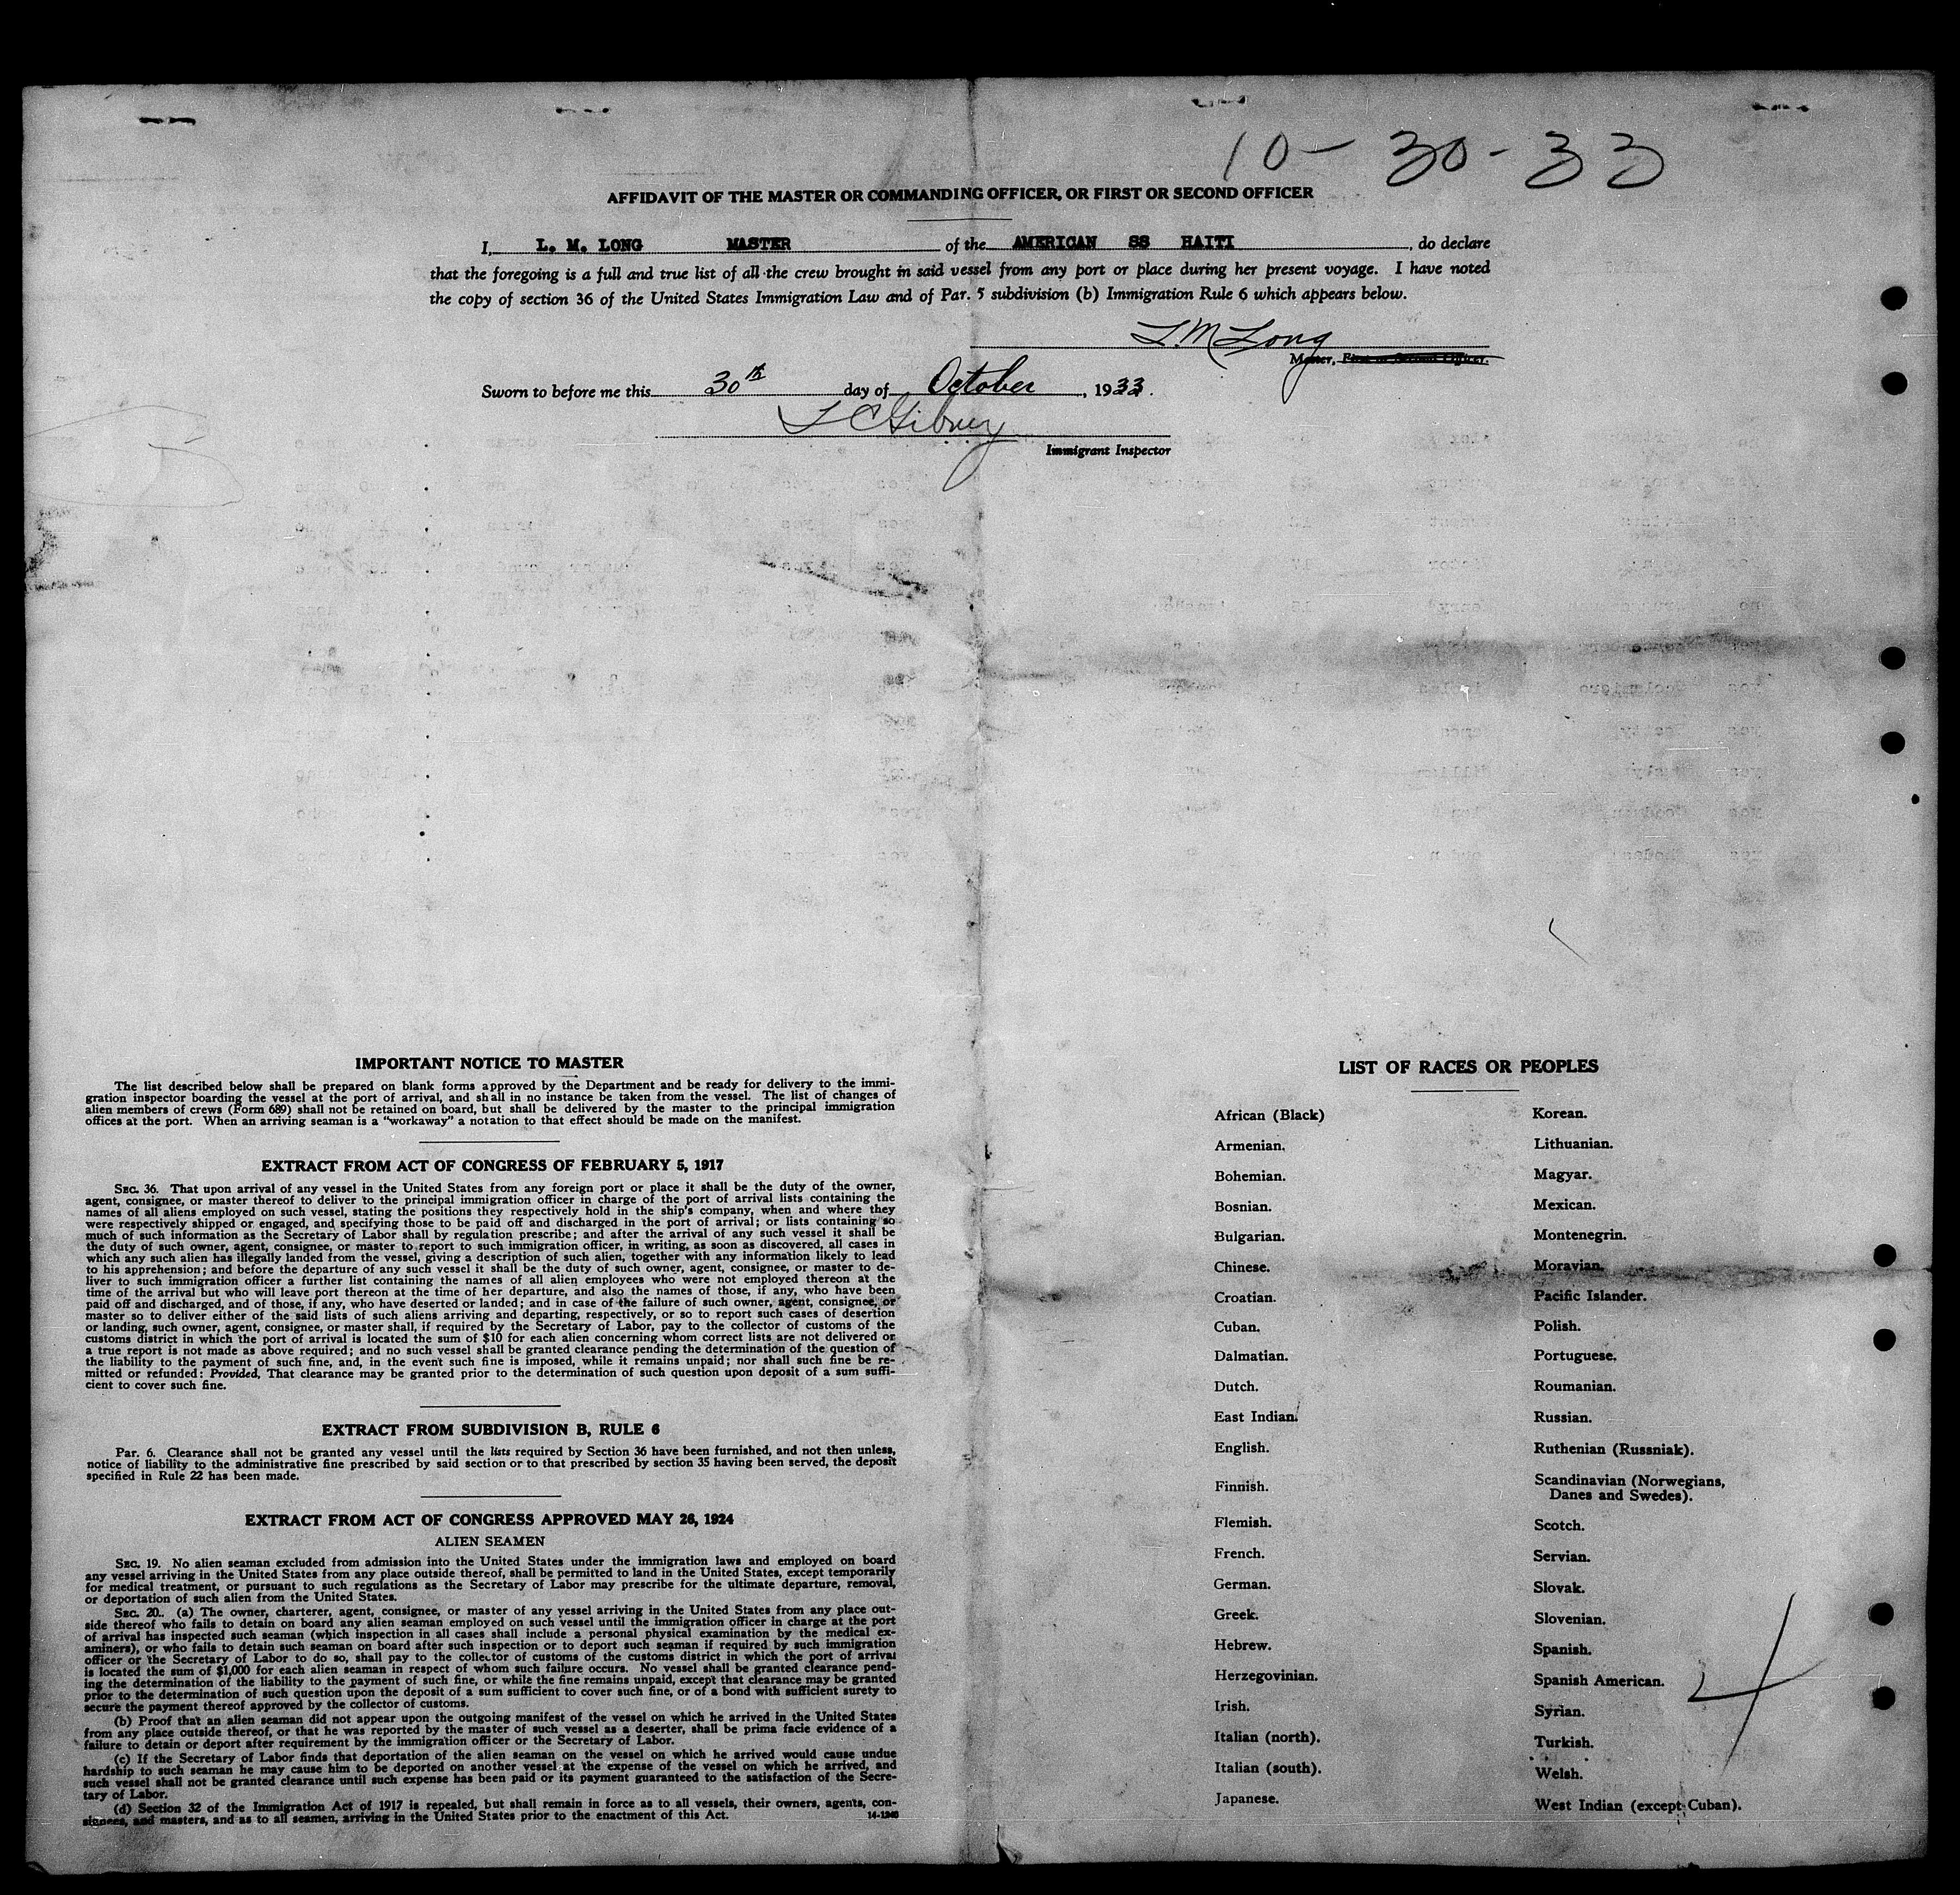 10-30-33
AFFIDAVIT OF THE MASTER OR COMMANDING OFFICER, OR FIRST OR SECOND OFFICER
I, L. M. LONG MASTER of the AMERICAN SS HAITI, do declare
that the foregoing is a full and true list of all the crew brought in said vessel from any port or place during her present voyage. I have noted
the copy of section 36 of the United States Immigration Law and of Par. 5 subdivision (b) Immigration Rule 6 which appears below.
L. M Long
Master, First or Second Officer.
Sworn to before me this 30th day of October, 1933.
L C Gibney
Immigrant Inspector
IMPORTANT NOTICE TO MASTER
The list described below shall be prepared on blank forms approved by the Department and be ready for delivery to the immi-
gration inspector boarding the vessel at the port of arrival, and shall in no instance be taken from the vessel. The list of changes of
alien members of crews (Form 689) shall not be retained on board, but shall be delivered by the master to the principal immigration
offices at the port. When an arriving seaman is a "workaway" a notation to that effect should be made on the manifest.
EXTRACT FROM ACT OF CONGRESS OF FEBRUARY 5, 1917
SEC. 36. That upon arrival of any vessel in the United States from any foreign port or place it shall be the duty of the owner,
agent, consignee, or master thereof to deliver to the principal immigration officer in charge of the port of arrival lists containing the
names of all aliens employed on such vessel, stating the positions they respectively hold in the ship's company, when and where they
were respectively shipped or engaged, and specifying those to be paid off and discharged in the port of arrival; or lists containing so
much of such information as the Secretary of Labor shall by regulation prescribe; and after the arrival of any such vessel it shall be
the duty of such owner, agent, consignee, or master to report to such immigration officer, in writing, as soon as discovered, all cases in
which any such alien has illegally landed from the vessel, giving a description of such alien, together with any information likely to lead
to his apprehension; and before the departure of any such vessel it shall be the duty of such owner, agent, consignee, or master to de-
liver to such immigration officer a further list containing the names of all alien employees who were not employed thereon at the
time of the arrival but who will leave port thereon at the time of her departure, and also the names of those, if any, who have been
paid off and discharged, and of those, if any, who have deserted or landed; and in case of the failure of such owner, agent, consignee, or
master so to deliver either of the said lists of such aliens arriving and departing, respectively, or so to report such cases of desertion
or landing, such owner, agent, consignee, or master shall, if required by the Secretary of Labor, pay to the collector of customs of the
customs district in which the port of arrival is located the sum of $10 for each alien concerning whom correct lists are not delivered or
a true report is not made as above required; and no such vessel shall be granted clearance pending the determination of the question of
the liability to the payment of such fine, and, in the event such fine is imposed, while it remains unpaid; nor shall such fine be re-
mitted or refunded: Provided, That clearance may be granted prior to the determination of such question upon deposit of a sum suffi-
cient to cover such fine.
EXTRACT FROM SUBDIVISION B, RULE 6
Par. 6. Clearance shall not be granted any vessel until the lists required by Section 36 have been furnished, and not then unless,
notice of liability to the administrative fine prescribed by said section or to that prescribed by section 35 having been served, the deposit
specified in Rule 22 has been made.
EXTRACT FROM ACT OF CONGRESS APPROVED MAY 26, 1924
ALIEN SEAMEN
SEC. 19. No alien seaman excluded from admission into the United States under the immigration laws and employed on board
any vessel arriving in the United States from any place outside thereof, shall be permitted to land in the United States, except temporarily
for medical treatment, or pursuant to such regulations as the Secretary of Labor may prescribe for the ultimate departure, removal,
or deportation of such alien from the United States.
SEC. 20. (a) The owner, charterer, agent, consignee, or master of any vessel arriving in the United States from any place out-
side thereof who fails to detain on board any alien seaman employed on such vessel until the immigration officer in charge at the port
of arrival has inspected such seaman (which inspection in all cases shall include a personal physical examination by the medical ex-
aminers), or who fails to detain such seaman on board after such inspection or to deport such seaman if required by such immigration
officer or the Secretary of Labor to do so, shall pay to the collector of customs of the customs district in which the port of arrival
is located the sum of $1,000 for each alien seaman in respect of whom such failure occurs. No vessel shall be granted clearance pend-
ing the determination of the liability to the payment of such fine, or while the fine remains unpaid, except that clearance may be granted
prior to the determination of such question upon the deposit of a sum sufficient to cover such fine, or of a bond with sufficient surety to
secure the payment thereof approved by the collector of customs.
(b) Proof that an alien seaman did not appear upon the outgoing manifest of the vessel on which he arrived in the United States
from any place outside thereof, or that he was reported by the master of such vessel as a deserter, shall be prima facie evidence of a
failure to detain or deport after requirement by the immigration officer or the Secretary of Labor.
(c) If the Secretary of Labor finds that deportation of the alien seaman on the vessel on which he arrived would cause undue
hardship to such seaman he may cause him to be deported on another vessel at the expense of the vessel on which he arrived, and
such vessel shall not be granted clearance until such expense has been paid or its payment guaranteed to the satisfaction of the Secre-
tary of Labor.
(d) Section 32 of the Immigration Act of 1917 is repealed, but shall remain in force as to all vessels, their owners, agents, con-
signees, and masters, and as to all seamen, arriving in the United States prior to the enactment of this Act.
LIST OF RACES OR PEOPLES
African (Black)
Armenian.
Bohemian.
Bosnian.
Bulgarian.
Chinese.
Croatian.
Cuban.
Dalmatian.
Dutch.
East Indian.
English.
Finnish.
Flemish.
French.
German.
Greek.
Hebrew.
Herzegovinian.
Irish.
Italian (north).
Italian (south).
Japanese.
Korean.
Lithuanian.
Magyar.
Mexican.
Montenegrin.
Moravian.
Pacific Islander.
Polish.
Portuguese.
Roumanian.
Russian.
Ruthenian (Russniak).
Scandinavian (Norwegians,
Danes and Swedes).
Scotch.
Servian.
Slovak.
Slovenian.
Spanish.
Spanish American.
Syrian.
Turkish.
Welsh.
West Indian (except Cuban).
4